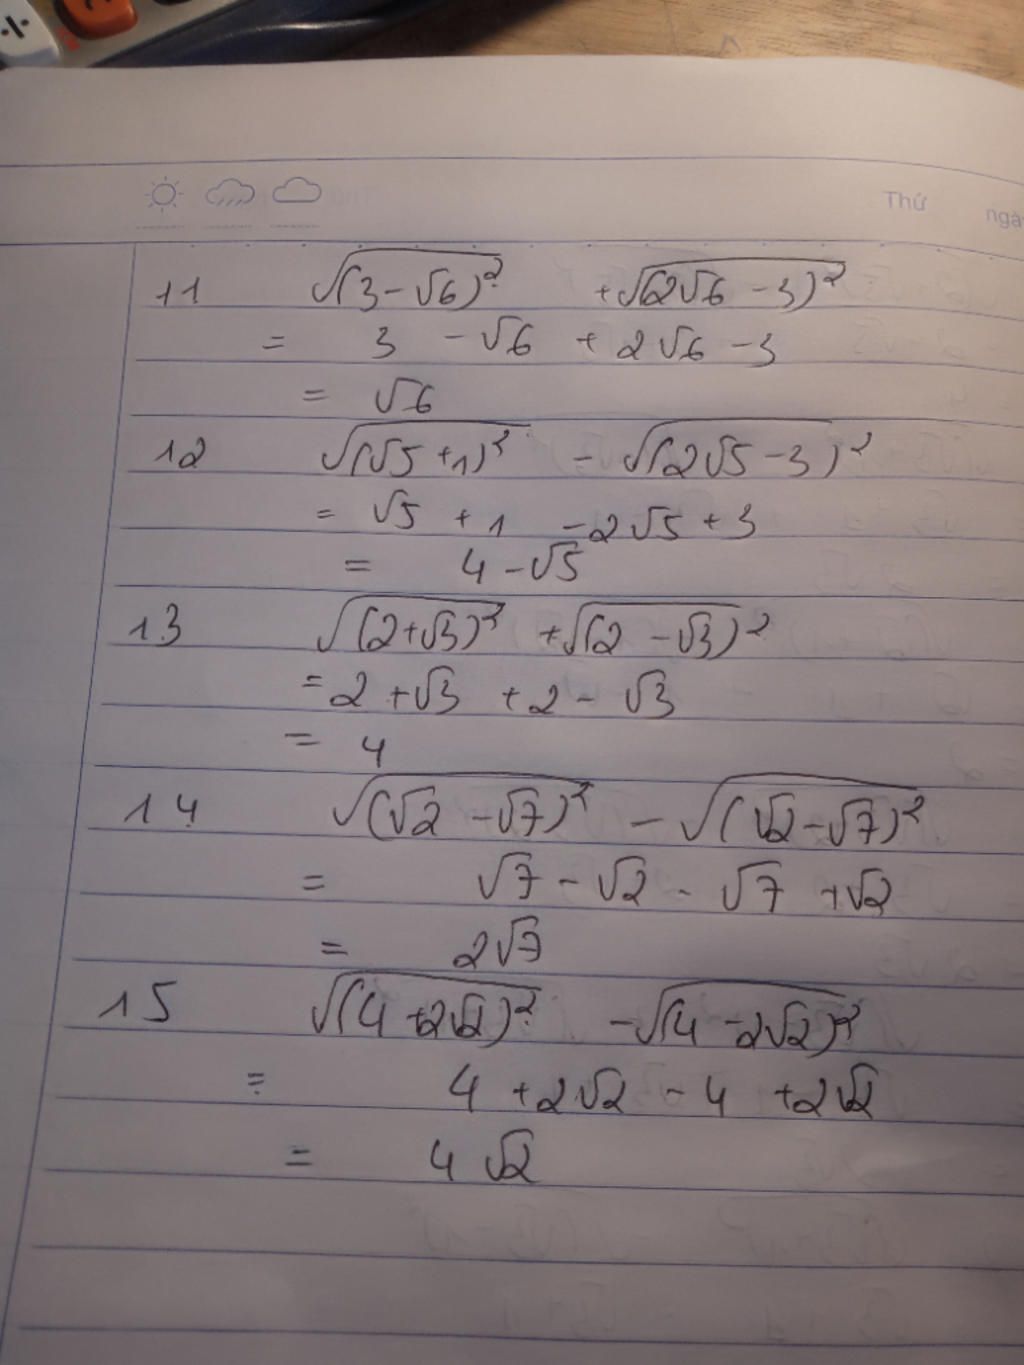 Thứ
ngày
11 √(3-√6)² + √(2√6 - 3)²
= 3 - √6 + 2√6 - 3
= √6
12 √(√5 + 1)² - √(2√5 - 3)²
= √5 + 1 - 2√5 + 3
= 4 - √5
13 √(2+√3)² + √(2 - √3)²
= 2 + √3 + 2 - √3
= 4
14 √(√2 - √7)² - √(√2 - √7)²
= √7 - √2 - √7 + √2
= 2√7
15 √(4 + 2√2)² - √(4 - 2√2)²
= 4 + 2√2 - 4 + 2√2
= 4√2